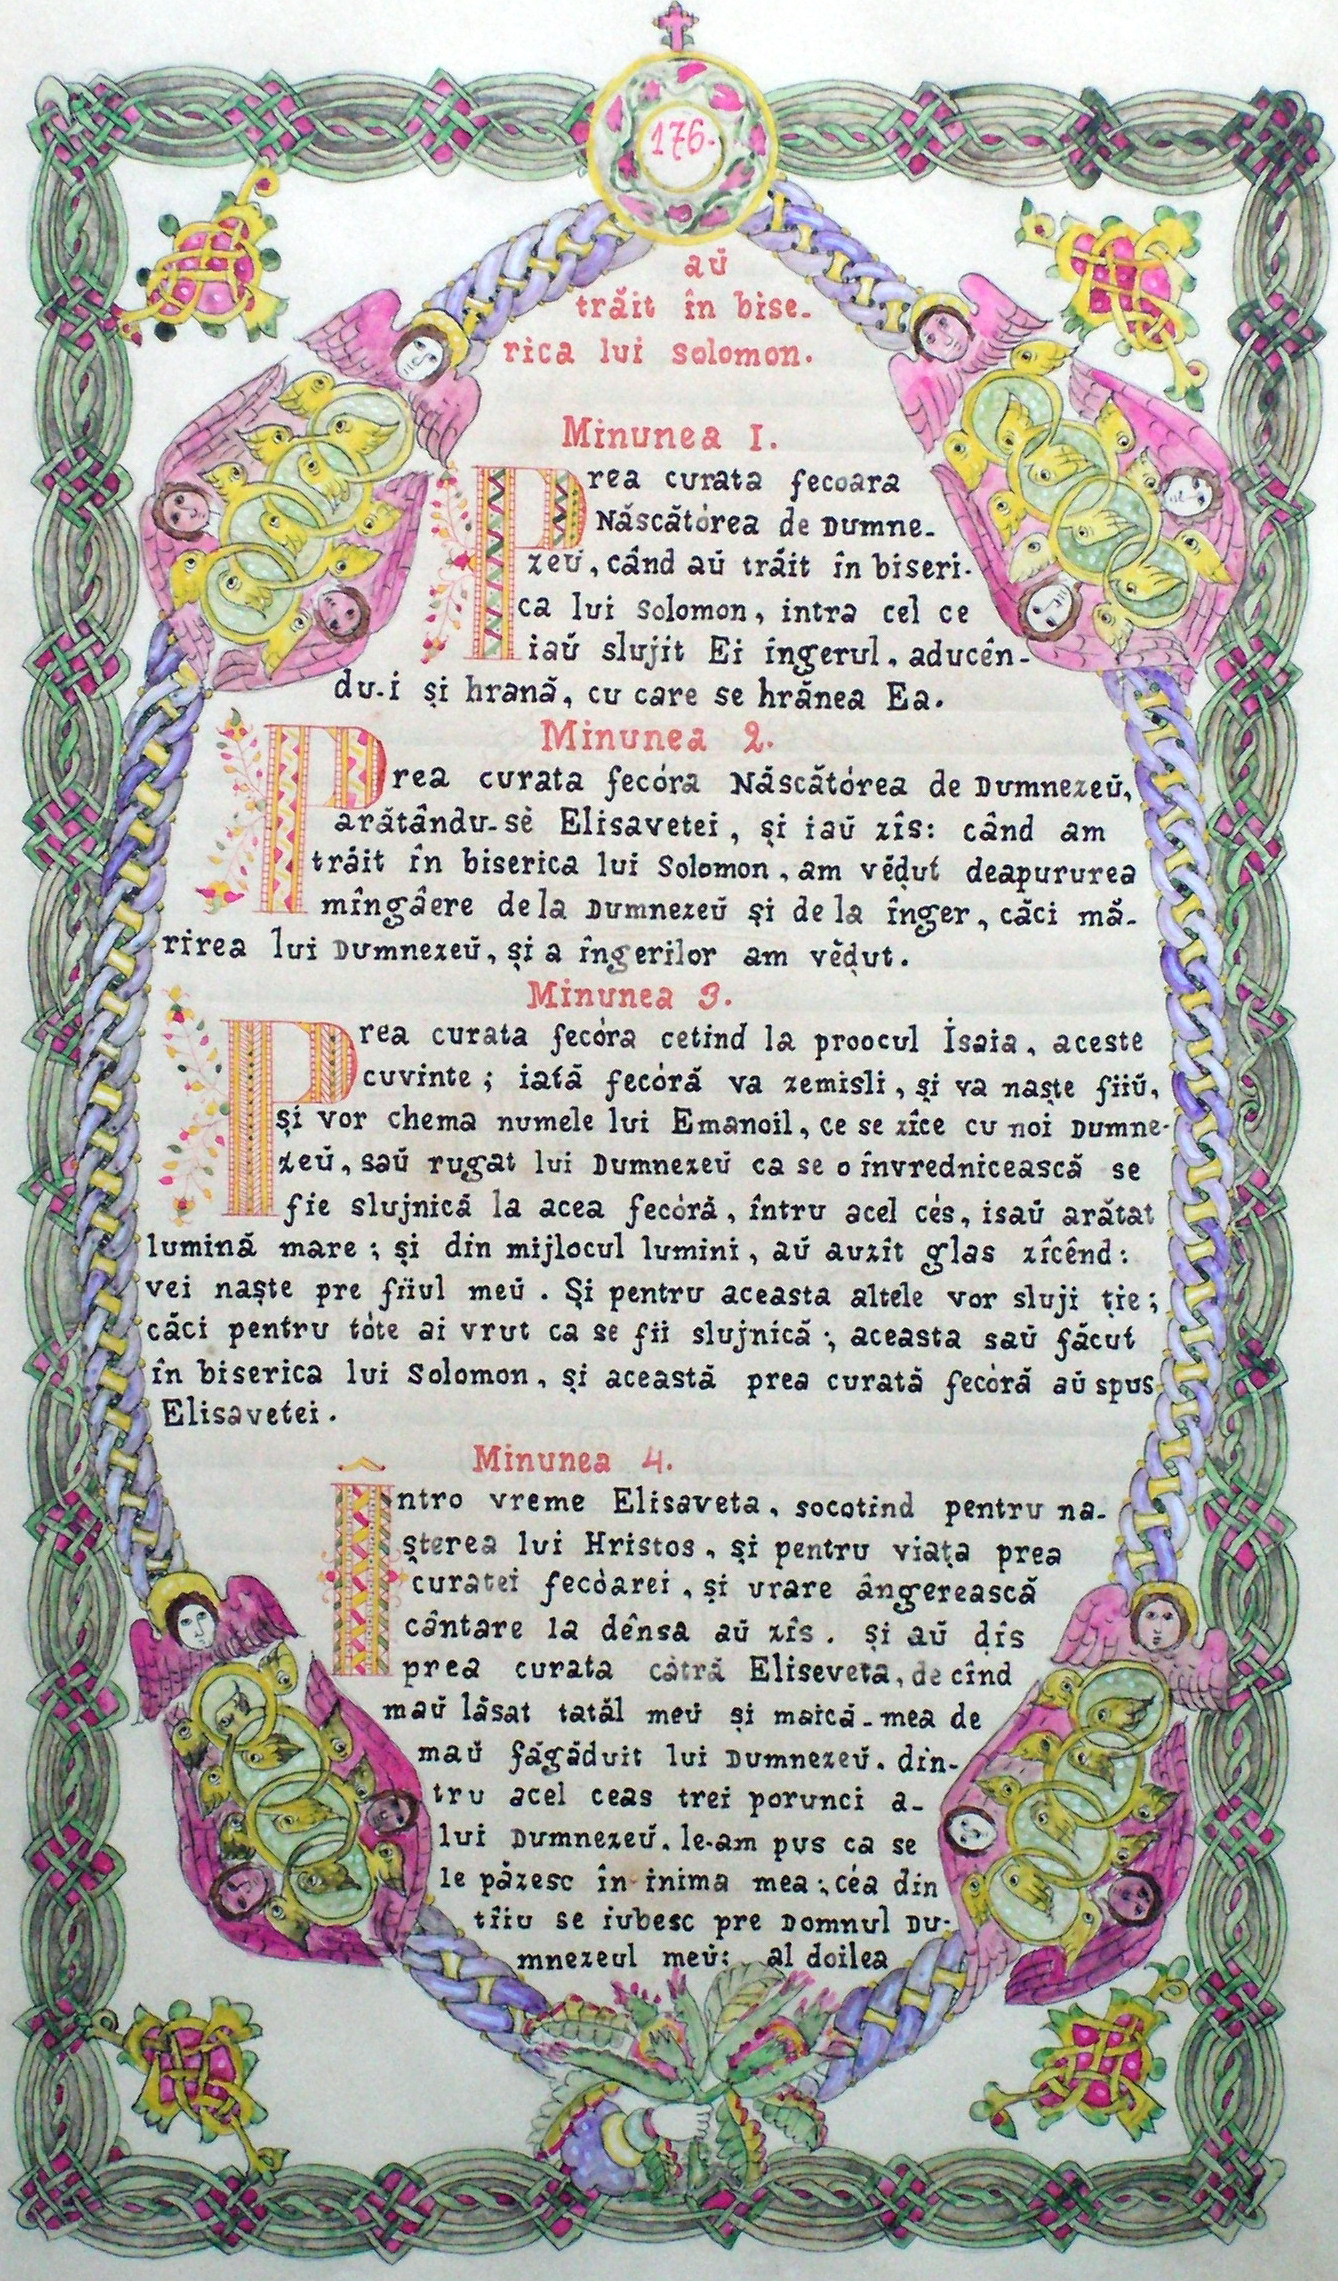 176.
aŭ
trăit în bise-
rica lui Solomon.
Minunea 1.
Prea curata fecoara
Născătórea de Dumne-
zeŭ, când aŭ trăit în biseri-
ca lui Solomon, intra cel ce
iaŭ slujit Ei îngerul, aducên-
du-i și hrană, cu care se hrănea Ea.
Minunea 2.
Prea curata fecóra Născătórea de Dumnezeŭ,
arătându-sè Elisavetei, și iaŭ zîs: când am
trăit în biserica lui Solomon, am vĕḑut deapururea
mîngâere de la Dumnezeŭ și de la înger, căci mă-
rirea lui Dumnezeŭ, și a îngerilor am vĕḑut.
Minunea 3.
Prea curata fecóra cetind la proocul Isaia, aceste
cuvinte; iată fecóră va zemisli, și va naște fiiŭ,
și vor chema numele lui Emanoil, ce se zîce cu noi Dumne-
zeŭ, saŭ rugat lui Dumnezeŭ ca se o învrednicească se
fie slujnică la acea fecóră, întru acel cés, isaŭ arătat
lumină mare; și din mijlocul lumini, aŭ auzît glas zîcênd:
vei naște pre fiiul meŭ. Și pentru aceasta altele vor sluji ție;
căci pentru tóte ai vrut ca se fii slujnică; aceasta saŭ făcut
în biserica lui Solomon, și această prea curată fecóră aŭ spus
Elisavetei.
Minunea 4.
Întro vreme Elisaveta, socotind pentru na-
șterea lui Hristos, și pentru viața prea
curatei fecóarei, și urare ângerească
cântare la dênsa aŭ zîs. Și aŭ ḑîs
prea curata cătră Eliseveta, de cînd
maŭ lăsat tatăl meŭ și maică-mea de
maŭ făgăduit lui Dumnezeŭ. din-
tru acel ceas trei porunci a-
lui Dumnezeŭ, le-am pus ca se
le păzesc în inima mea; céa din
tîiu se iubesc pre Domnul Du-
mnezeul meŭ; al doilea